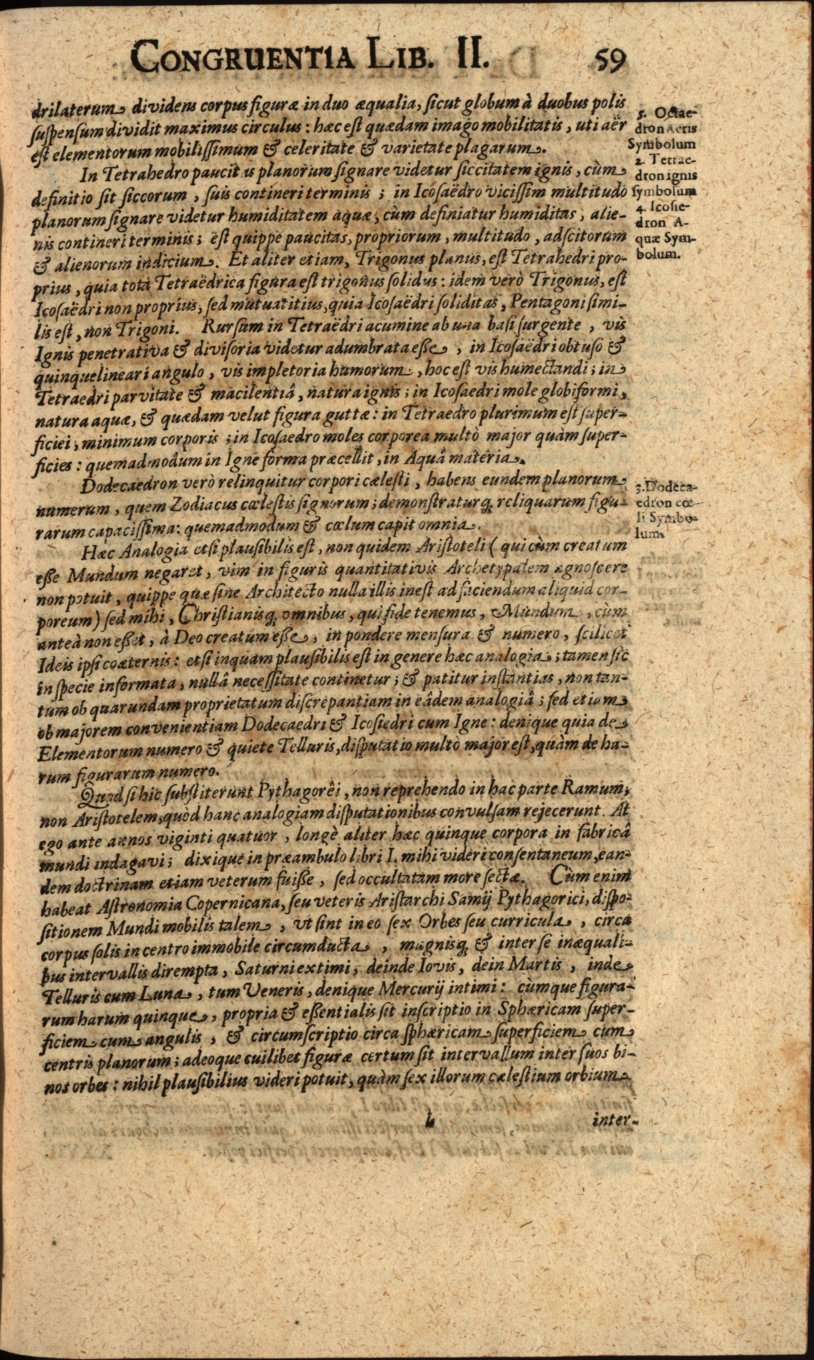 CONGRUENTIA LIB. II. 59
drilaterum dividens corpus figuræ in duo æqualia, sicut globum à duobus polis
suspensum dividit maximus circulus: hæc est quædam imago mobilitatis, uti aër
est elementorum mobilissimum & celeritate & varietate plagarum.
In Tetrahedro paucitas planorum signare videtur siccitatem ignis, cùm
definitio sit siccorum, suis contineri terminis; in Icosaëdro vicissim multitudo
planorum signare videtur humiditatem aquæ, cùm definiatur humiditas, alie-
nis contineri terminis; est quippe paucitas, propriorum, multitudo, adscitorum
& alienorum indicium. Et aliter etiam, Trigonus planus, est Tetrahedri pro-
prius, quia tota Tetraëdrica figura est trigonus solidus: idem verò Trigonus, est
Icosaëdri non proprius, sed mutuatitius, quia Icosaëdri soliditas, Pentagoni simi-
lis est, non Trigoni. Rursùm in Tetraëdri acumine ab una basi surgente, vis
Ignis penetrativa & divisoria videtur adumbrata esse, in Icosaëdri obtuso &
quinquelineari angulo, vis impletoria humorum, hoc est vis humectandi; in
Tetraedri parvitate & macilentiâ, natura ignis; in Icosaedri mole globiformi,
natura aquæ, & quædam velut figura guttæ: in Tetraedro plurimum est super-
ficiei, minimum corporis; in Icosaedro moles corporea multò major quàm super-
ficies: quemadmodum in Igne forma præcellit, in Aquâ materia.
Dodecaedron verò relinquitur corpori cælesti, habens eundem planorum
numerum, quem Zodiacus cælestis signorum; demonstraturq́; reliquarum figu-
rarum capacissima: quemadmodum & cælum capit omnia.
Hæc Analogia etsi plausibilis est, non quidem Aristoteli (qui cùm creatum
esse Mundum negaret, vim in figuris quantitativis Archetypalem agnoscere
non potuit, quippe quæ sine Architecto nulla illis inest ad faciendum aliquid cor-
poreum) sed mihi, Christianisq́; omnibus, qui fide tenemus, Mundum, cùm
anteà non esset, à Deo creatum esse, in pondere mensura & numero, scilicet
Ideis ipsi coæternis: etsi inquam plausibilis est in genere hæc analogia; tamen sic
in specie informata, nullâ necessitate continetur; & patitur instantias, non tan-
tum ob quarundam proprietatum discrepantiam in eâdem analogiâ; sed etiam
ob majorem convenientiam Dodecaedri & Icosiedri cum Igne: denique quia de
Elementorum numero & quiete Telluris, disputatio multò major est, quàm de ha-
rum figurarum numero.
Quod si hîc substiterunt Pythagorêi, non reprehendo in hac parte Ramum,
non Aristotelem, quòd hanc analogiam disputationibus convulsam rejecerunt. At
ego ante annos viginti quatuor, longè aliter hæc quinque corpora in fabricâ
mundi indagavi; dixique in præambulo libri I. mihi videri consentaneum, ean-
dem doctrinam etiam veterum fuisse, sed occultatam more sectæ. Cùm enim
habeat Astronomia Copernicana, seu veteris Aristarchi Samij Pythagorici, dispo-
sitionem Mundi mobilis talem, ut sint in eo sex Orbes seu curricula, circa
corpus solis in centro immobile circumducta, magnisq́; & inter se inæquali-
bus intervallis dirempta, Saturni extimi, deinde Iovis, dein Martis, inde
Telluris cum Luna, tum Veneris, denique Mercurij intimi: cùmque figura-
rum harum quinque, propria & essentialis sit inscriptio in Sphæricam super-
ficiem cum angulis, & circumscriptio circa sphæricam superficiem cum
centris planorum; adeoque cuilibet figuræ certum sit intervallum inter suos bi-
nos orbes: nihil plausibilius videri potuit, quàm sex illorum cælestium orbium
inter-
5. Octae-
dron Aeris
Symbolum
2. Tetrae-
dron ignis
symbolum
4. Icosie-
dron A-
quæ Sym-
bolum.
3. Dodeca-
edron cœ-
li Symbo-
lum.